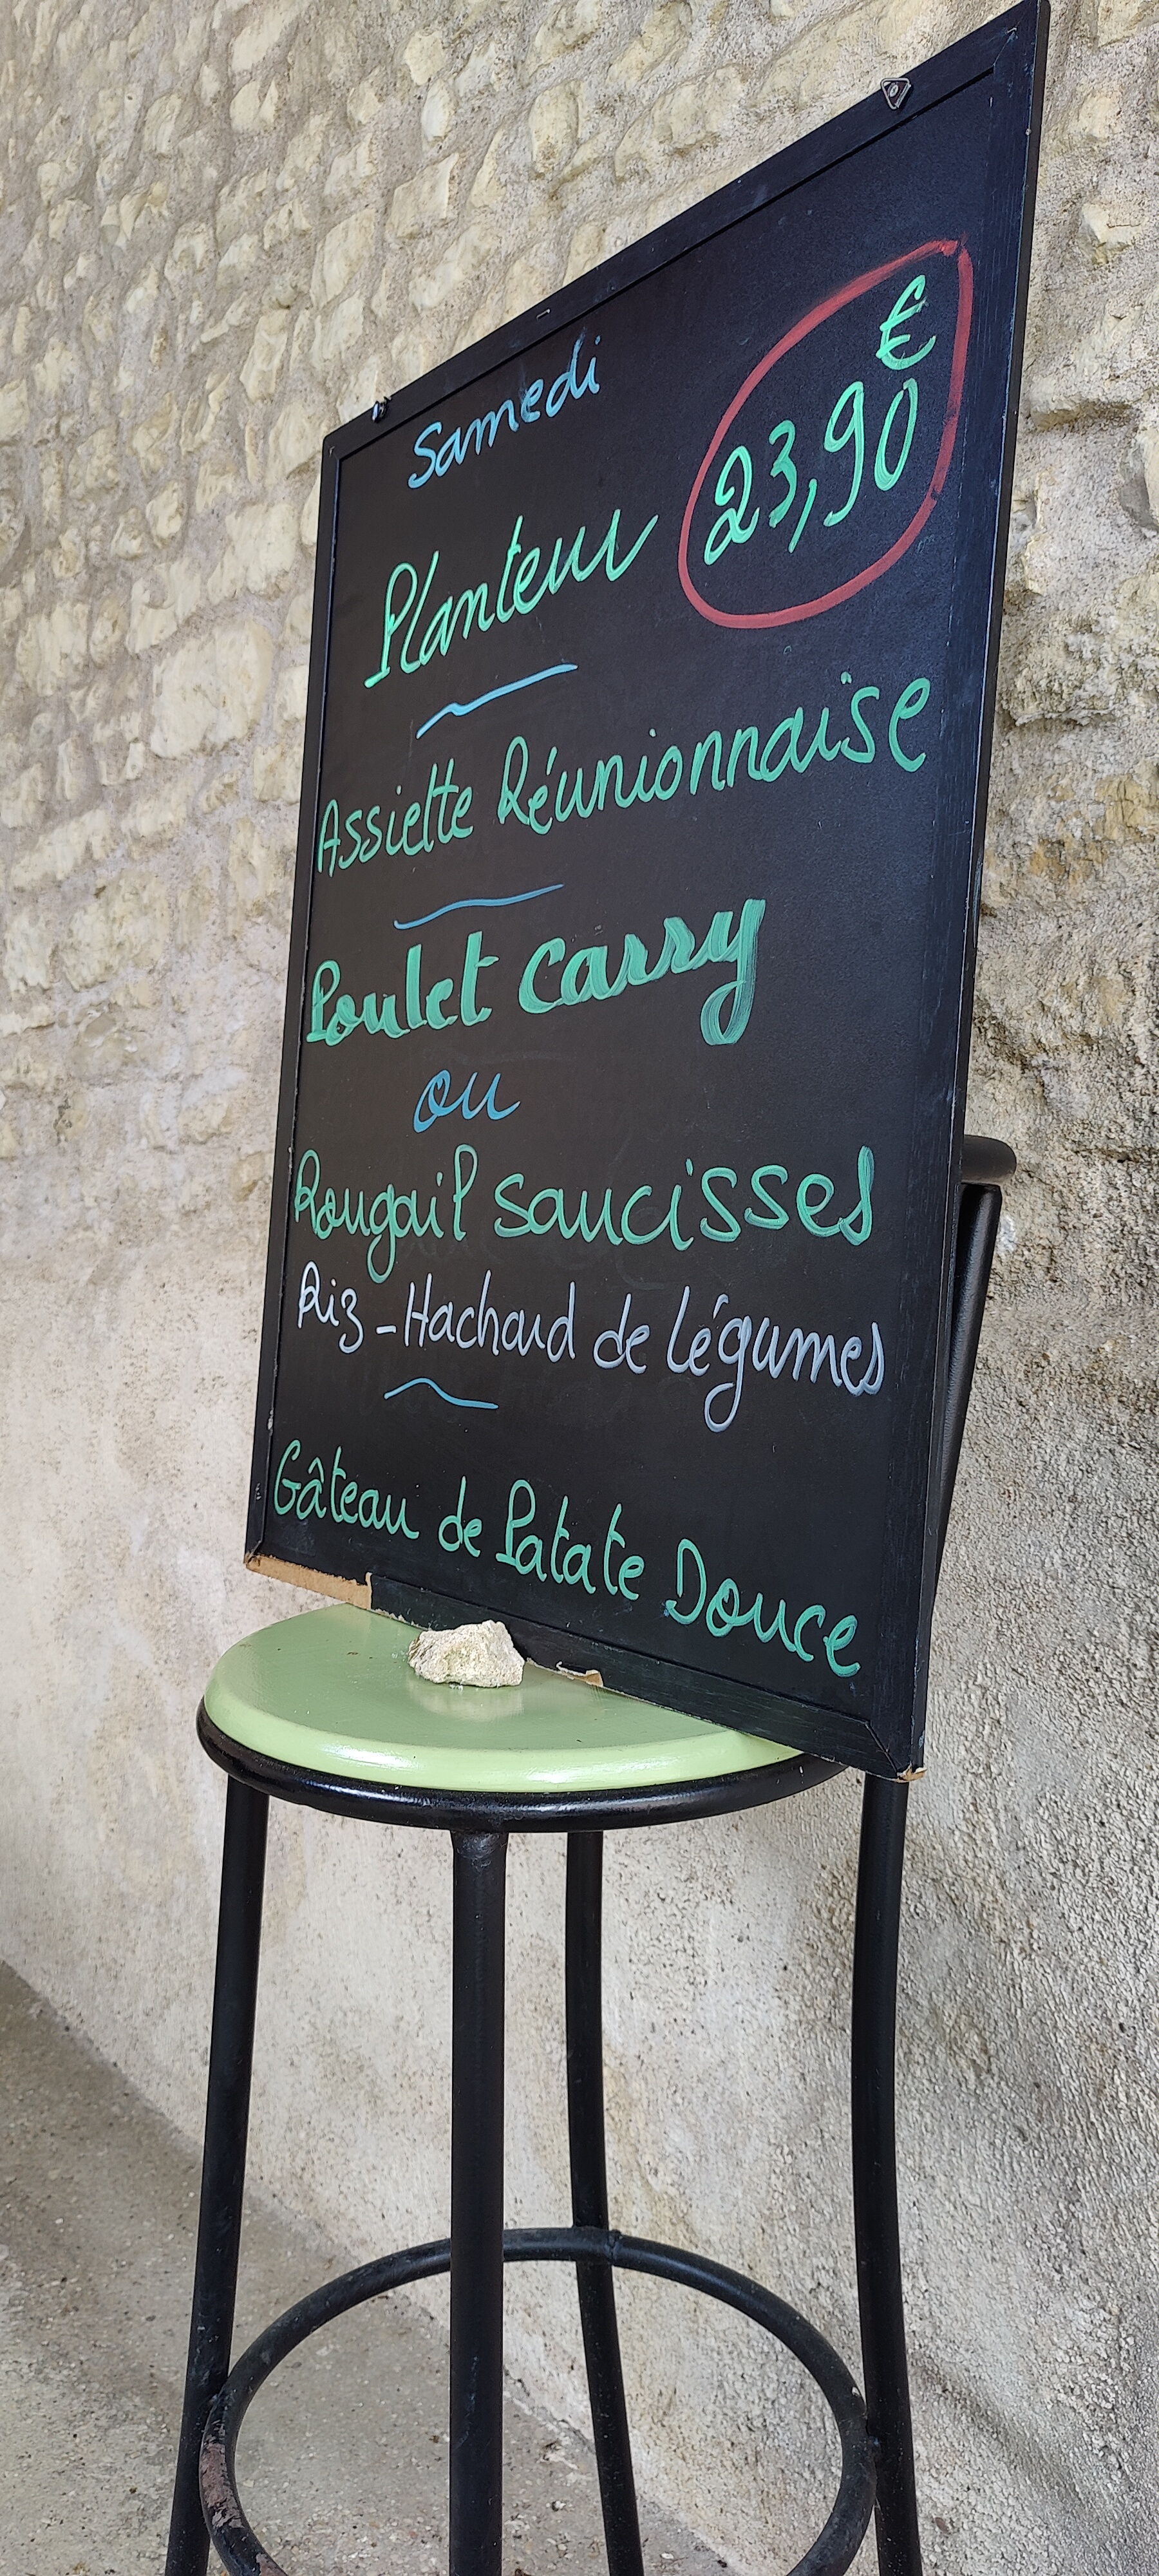 Samedi
€
23,90
Planteur
Assiette Réunionnaise
Poulet Carry
ou
Rougail saucisses
Riz - Hachard de légumes
Gâteau de Patate Douce